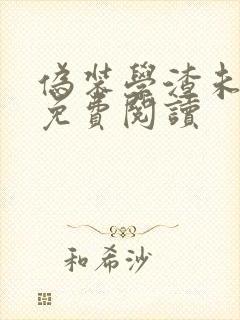 偽裝學渣未
免費閱讀
和希沙